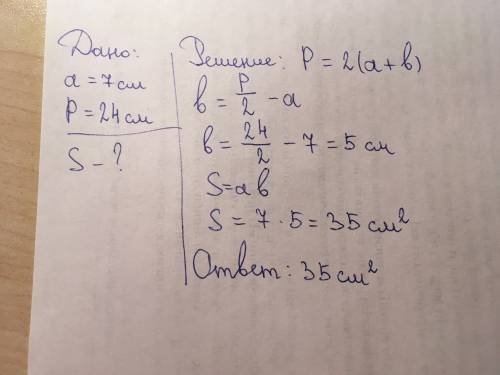 Дано:
a = 7 см
P = 24 см
S – ?
Решение: P = 2(a + b)
b = P/2 – a
b = 24/2 – 7 = 5 см
S = ab
S = 7 · 5 = 35 см²
Ответ: 35 см²